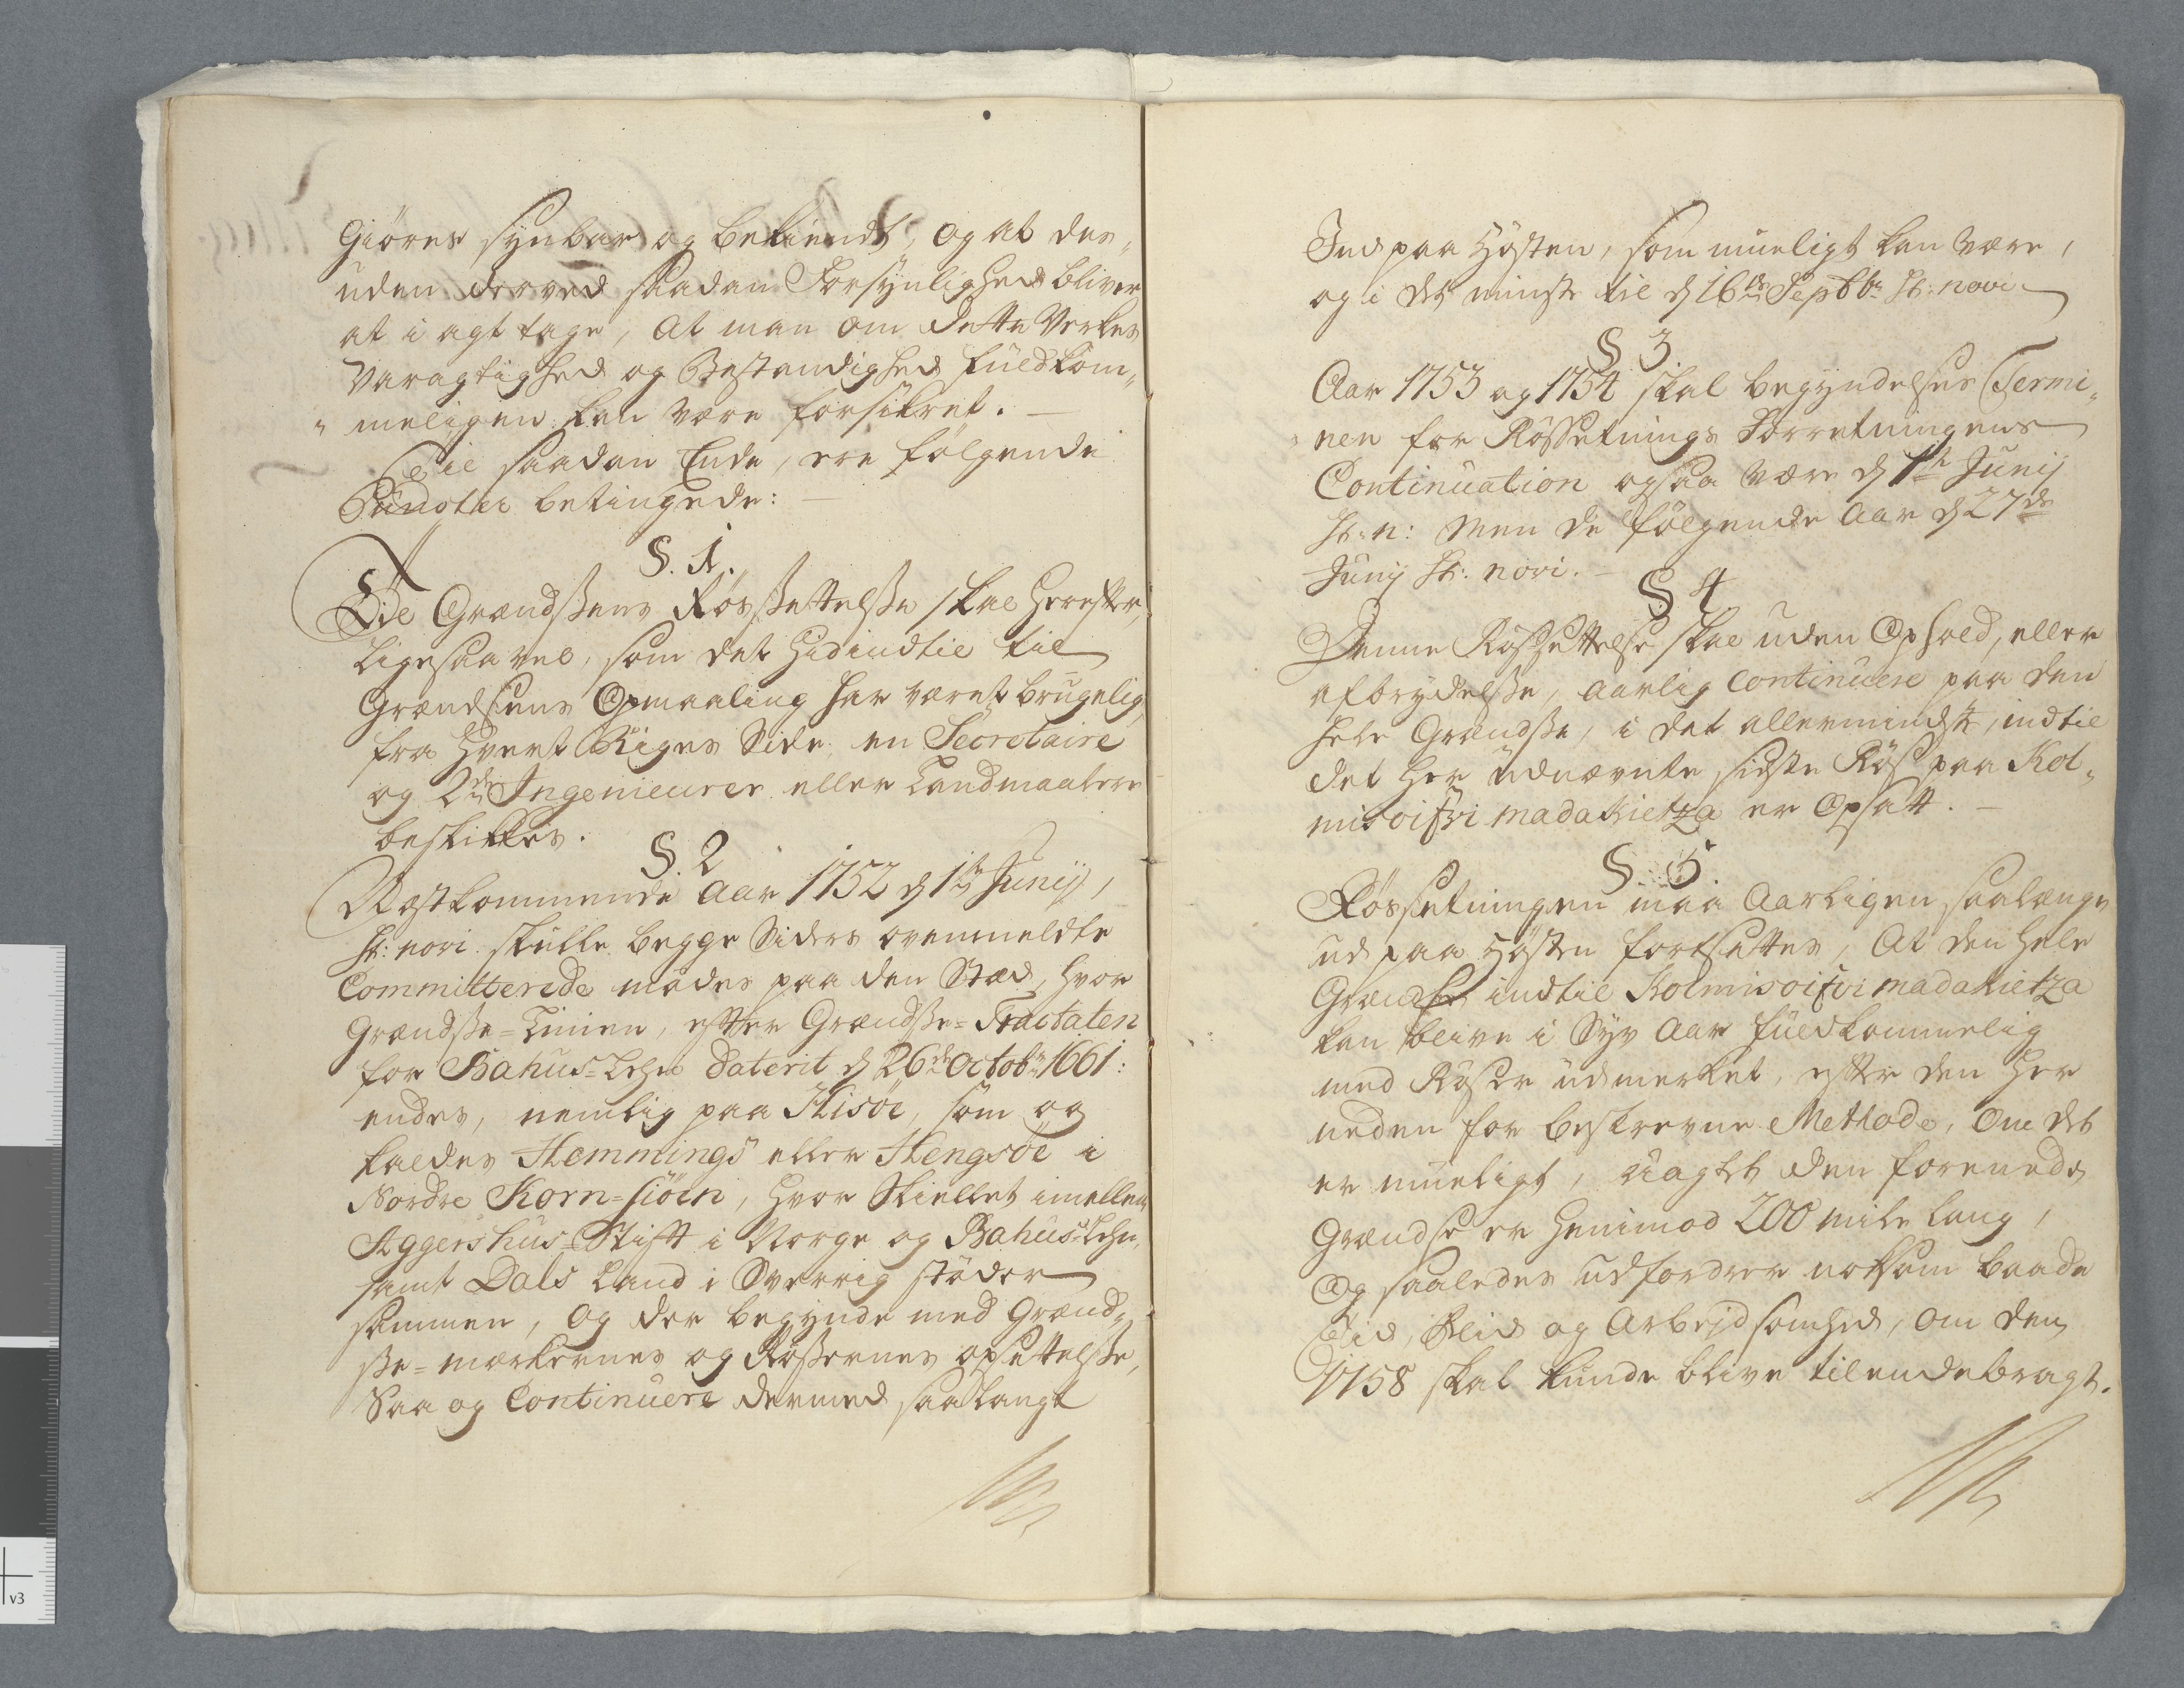 Giöres synbar og bekiendt, og at des„
uden derved saadan Forsynlighed bliver
at i agt tage, At man om dette Verkes
Varagtighed og Bestandighed fuldkom„
„meligen kan være forsikret. —
Til saadan Ende, ere følgende
Puncter betingede: —
§. 1.
Til Grændssens Røsssettelsse skal herefter,
ligesaavel, som det hidindtil til
Grændsens Opmaaling har været brugelig,
fra hvert Riges Side, en Secretaire
og 2de Ingenieurer eller Landmaalere
beskikkes.
§. 2
Næstkommende Aar 1752 d 1te Junij,
st: novi skulle begge Siders ovenmeldte
Committerede mødes paa den Stæd, hvor
Grændsse=Linien, efter Grændsse=Tractaten
for Bahus=Lehn daterit d 26de Octobr 1661:
endes, nemlig paa Hisöe, som og
kaldes Hemmings eller Hengsöe i
Nordre Korn=siöen, hvor Skiellet imellem
Aggershus=Stift i Norge og Bahus=Lehn,
samt Dals Land i Sverrig støder
sammen, og der begynde med Grænd„
sse=merkernes og Røssernes opsettelsse,
Saa og Continuere dermed saa langt
Ind paa Høsten, som mueligt kan være,
og i det minste til d 16de Septbr st: novi
§ 3.
Aar 1753 og 1754 skal begyndelses Termi„
„nen for Røssetnings Forretningens
Continuation ogsaa være d 1te Junij
st: n: Men de følgende Aar d 27de
Junij st: novi. —
§ 4
Denne Røssettelse skal uden Ophold, eller
afbrydelsse, aarlig Continuere paa den
hele Grændsse, i det allermindste, indtil
det her udnævnte sidste Røs paa Kol„
misoifvi madakietza er Opsatt. —
§. 5.
Røssetningen maa Aarligen saalænge
ud paa Høsten fortsettes, At den hele
Grændse indtil Kolmisoifvi madakietza
kan blive i Syv Aar fuldkommelig
med Røser udmerket, efter den her
neden for beskrevne Methode, Om det
er mueligt, uagtet den forenede
Grændse er henimod 200 mile lang,
Og saaledes udfordrer noksom baade
Tid, Flid og Arbejdsomhed, om den
1758 skal kunde blive tilendebragt.